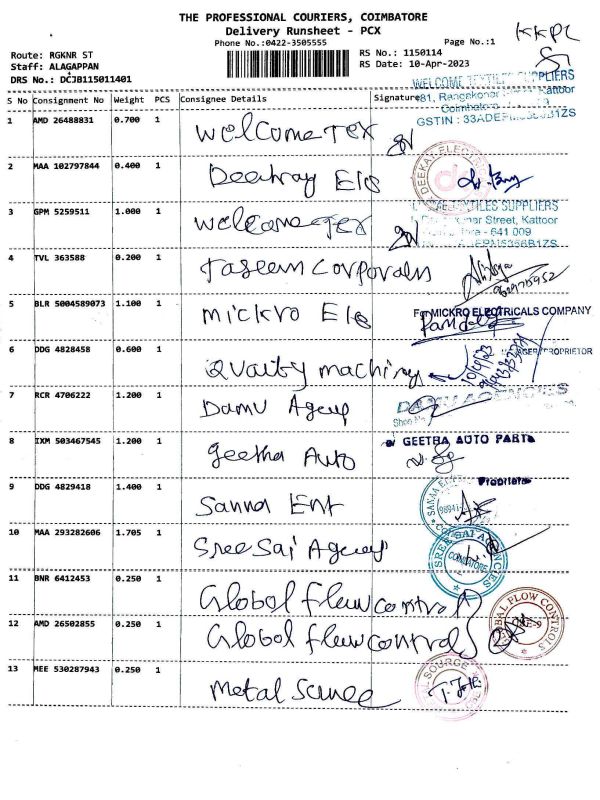 THE PROFESSIONAL COURIERS, COIMBATORE
Delivery Runsheet - PCX
Phone No.:0422-3505555 Page No.:1
KKPL
Route: RGKNR ST RS No.: 1150114
Staff: ALAGAPPAN RS Date: 10-Apr-2023
DRS No.: DCJB115011401
WELCOME TEXTILES SUPPLIERS
S No Consignment No Weight PCS Consignee Details Signature
Kattoor
GSTIN : 33ADEPM
1 AMD 26488831 0.700 1 Welcome Tex
2 MAA 102797844 0.400 1 DEEKAY ELECTRIC
3 GPM 5259511 1.000 1 Welcome Tex
TEXTILES SUPPLIERS
Street, Kattoor
- 641 009
4 TVL 363588 0.200 1
5 BLR 5004589073 1.100 1 Mickro Ele
For MICKRO ELECTRICALS COMPANY
6 DDG 4828458 0.600 1 Quality machinery
PROPRIETOR
7 RCR 4706222 1.200 1 Damu Agency
DAMU AGENCIES
8 IXM 503467545 1.200 1 Geetha Auto
GEETHA AUTO PARTS
Proprietor
9 DDG 4829418 1.400 1 Sanna Ent
10 MAA 293282606 1.705 1 Sree Sai Agency
SREE SAI AGENCIES
COIMBATORE
11 BNR 6412453 0.250 1 Global flow control
12 AMD 26502855 0.250 1 Global flow controls
GLOBAL FLOW CONTROLS
13 MEE 530287943 0.250 1 Metal Source
SOURCE